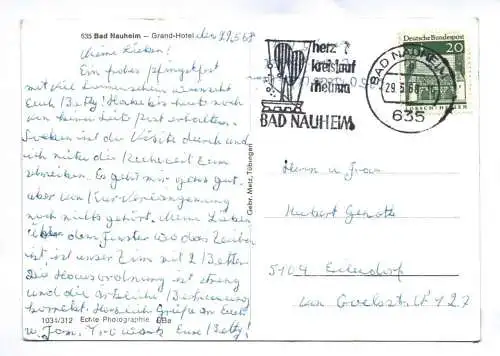 635 Bad Nauheim – Grand-Hotel den 29.5.68
Meine Lieben!
Ein frohes Pfingstfest
mit viel Sonnenschein wünscht
Euch Betty! Habe bis heute noch
von keiner Seite Post erhalten.
Soeben ist die Visite durch und
ich nütze die Zeit zum
schreiben. Es geht mir ganz gut.
aber von Kur-Verlängerung
noch nichts gehört.
über dem Fenster wo das Zeichen
ist ist unser Zimm mit 2 Betten.
Die Hausordnung ist streng
und die ärztliche Betreuung
korrekt. Herzliche Grüße an Euch
u. Fam. Eure Betty!
1034/312 Echte Photographie
Gebr. Metz, Tübingen
herz
kreislauf
rheuma
BAD NAUHEIM
BAD NAUHEIM
29.5.68
635
Deutsche Bundespost
20
LORSCH/HESSEN
Herrn u. Frau
Hubert
5104 Eilendorf
Von Coelsstr. 127